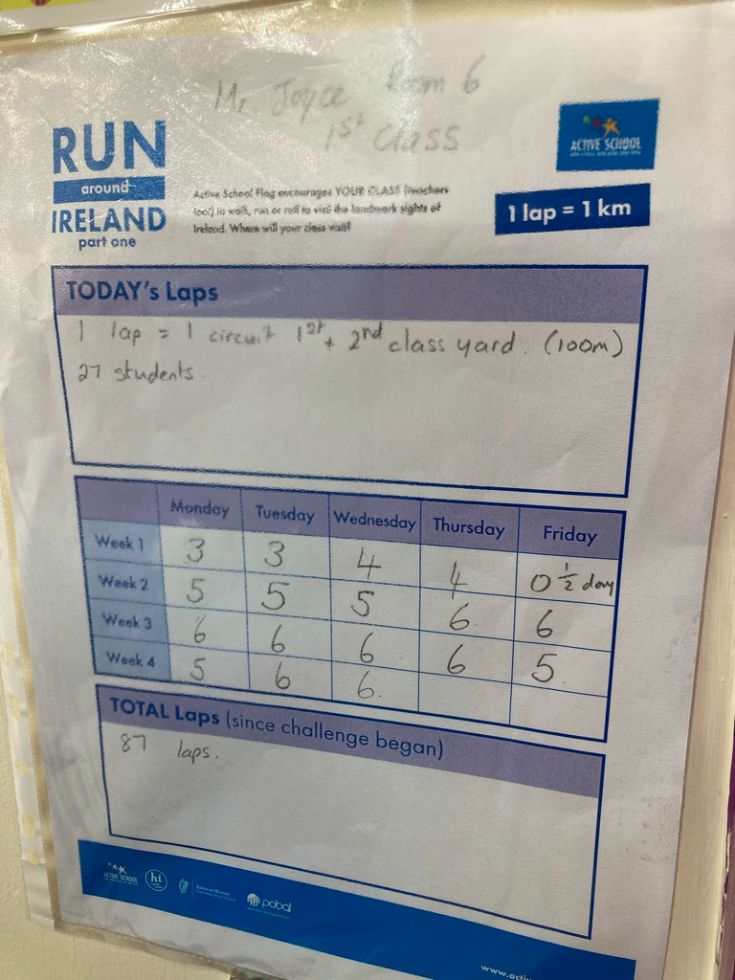 Mr. Joyce Room 6
1st Class
RUN
around
IRELAND
part one
ACTIVE SCHOOL
Active School Flag encourages YOUR CLASS (teachers
too!) to walk, run or roll to visit the landmark sights of
Ireland. Where will your class visit?
1 lap = 1 km
TODAY's Laps
1 lap = 1 circuit 1st + 2nd class yard. (100m)
27 students.
Monday Tuesday Wednesday Thursday Friday
Week 1 3 3 4 4 0 ½ day
Week 2 5 5 5 6. 6
Week 3 6 6 6 6 5.
Week 4 5 6 6.
TOTAL Laps (since challenge began)
87 laps.
ACTIVE SCHOOL
hi
pobal